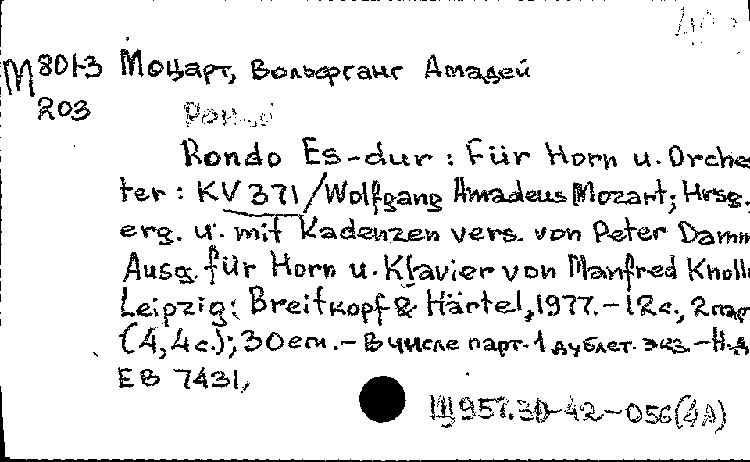 М 801-3 Моцарт, Вольфганг Амадей
203 Рондо
Rondo Es-dur : Für Horn u. Orches
ter : KV 371 / Wolfgang Amadeus Mozart; Hrsg.,
erg. u. mit Kadenzen vers. von Peter Damm
Ausg. für Horn u. Klavier von Manfred Knoll
Leipzig: Breitkopf & Härtel, 1977. – 12 с., 2 пар
(4, 4 с.); 30 cm. – В числе парт. 1 дублет. экз. – Н.д.
EB 7431,
Щ957.3D-42-056(4А)